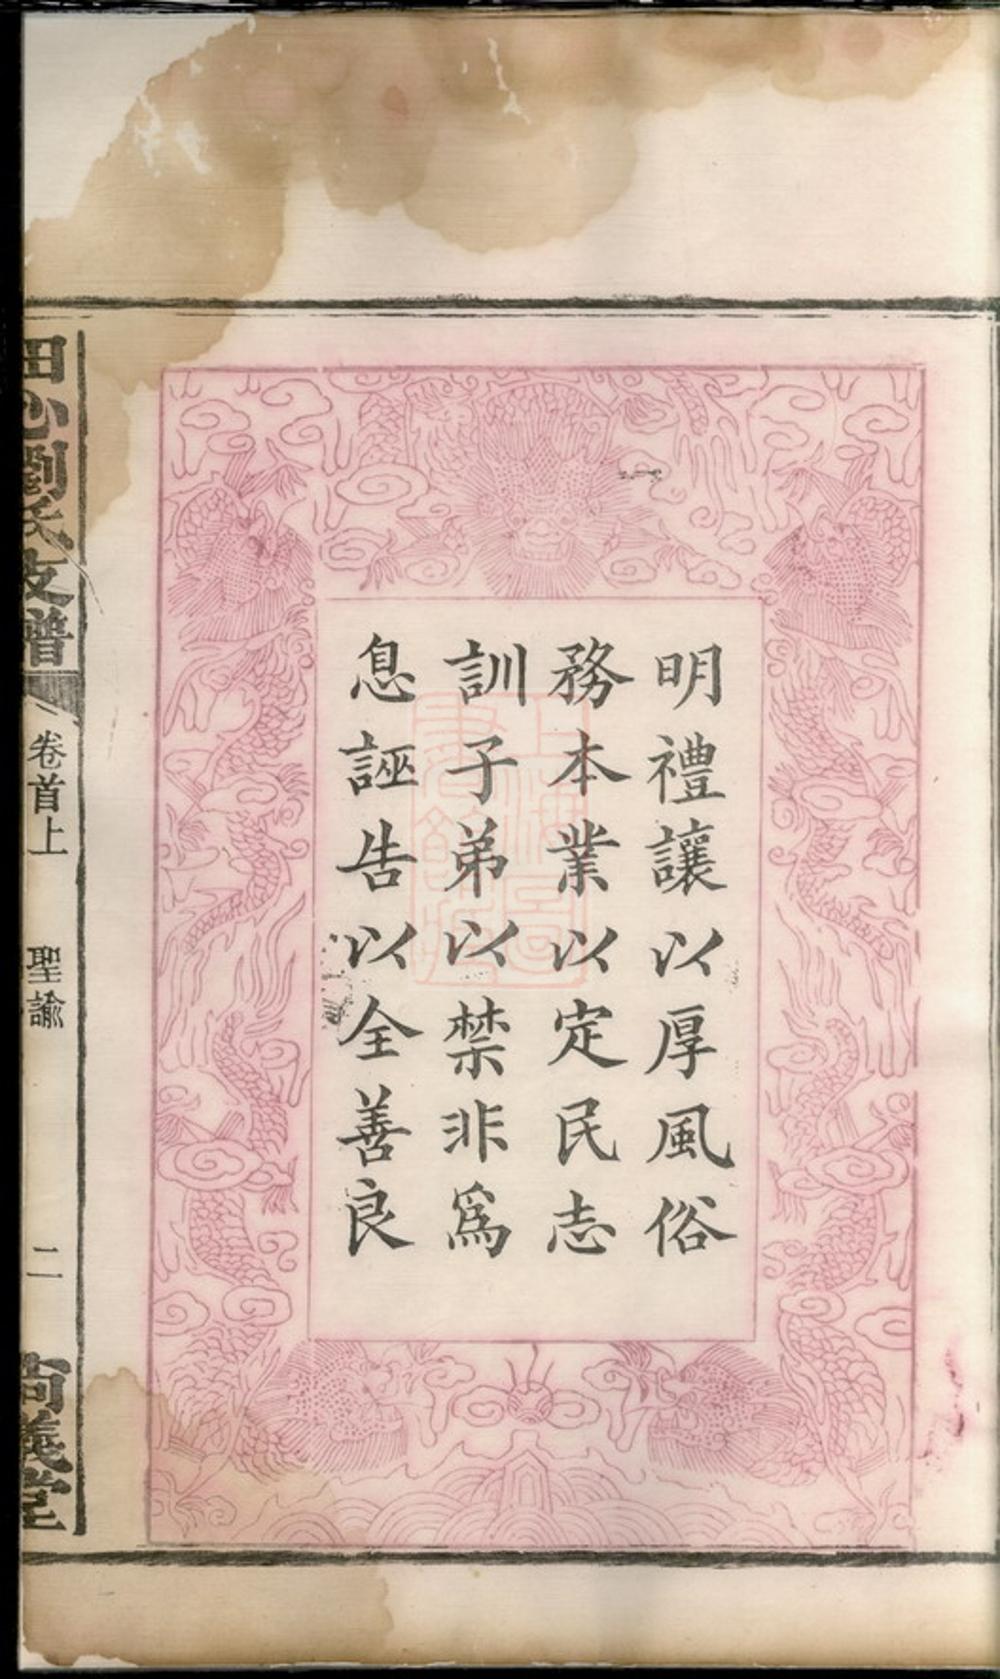 明禮讓以厚風俗
務本業以定民志
訓子弟以禁非爲
息誣告以全善良
劉氏支譜
卷首上
聖諭
二
尚義堂